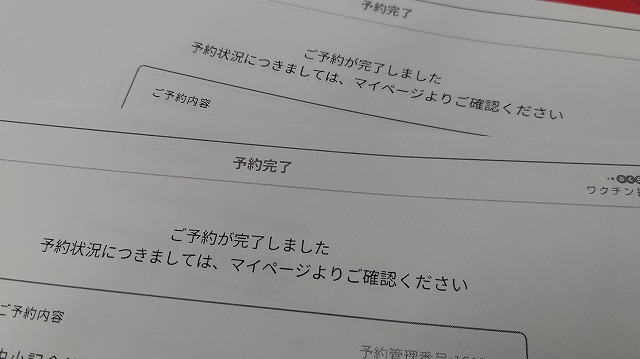 予約完了
ご予約が完了しました
予約状況につきましては、マイページよりご確認ください
ご予約内容
予約完了
ワクチン
ご予約が完了しました
予約状況につきましては、マイページよりご確認ください
ご予約内容
予約管理番号